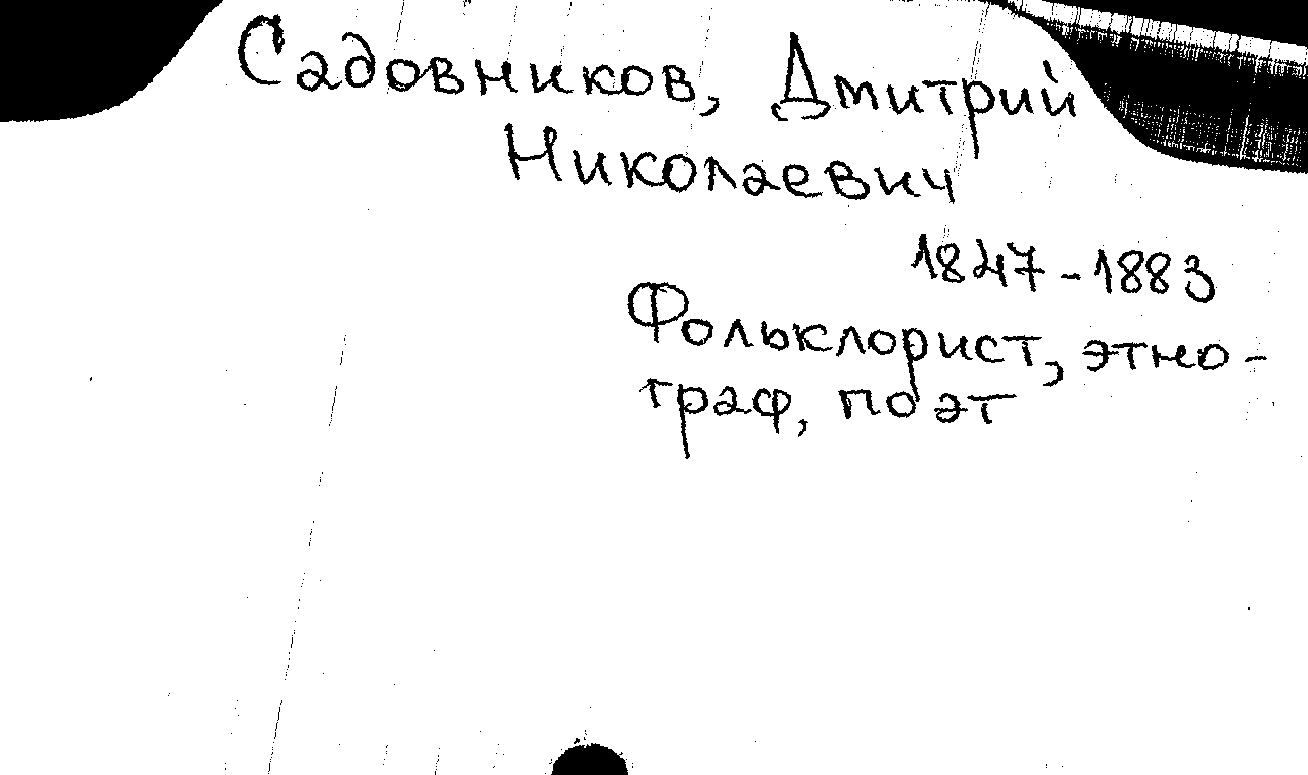 Садовников, Дмитрий
Николаевич
1847-1883
Фольклорист, этно-
граф, поэт